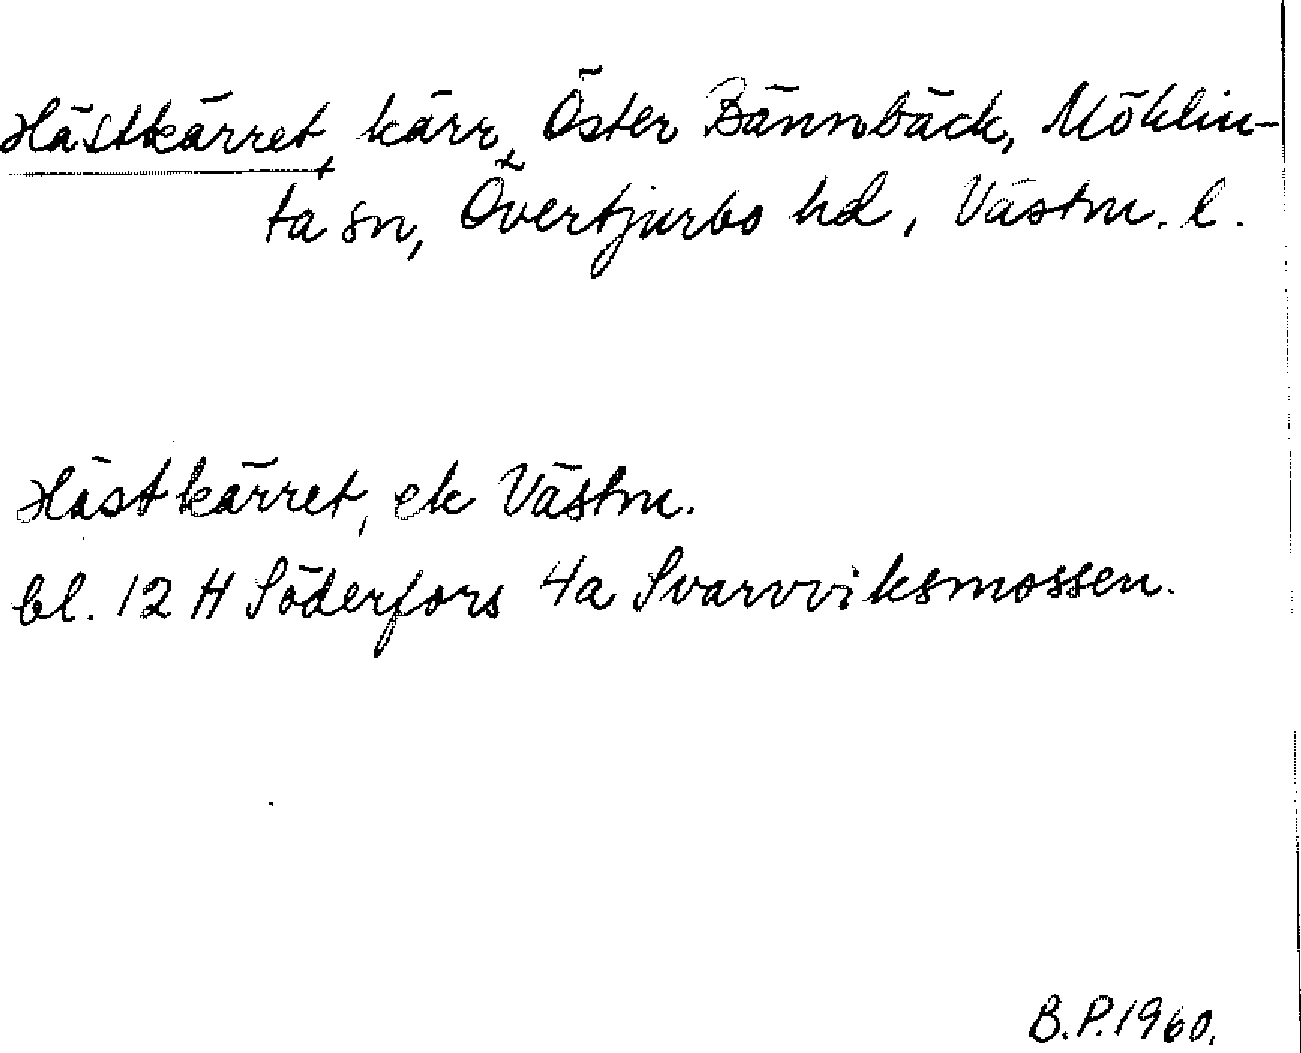 Hästkärret, kärr, Öster Bännbäck, Möklin-
ta sn, Övertjurbo hd, Västm. l.
Hästkärret, ek Västm.
bl. 12 H Söderfors 4a Svarvviksmossen.
B.P. 1960.